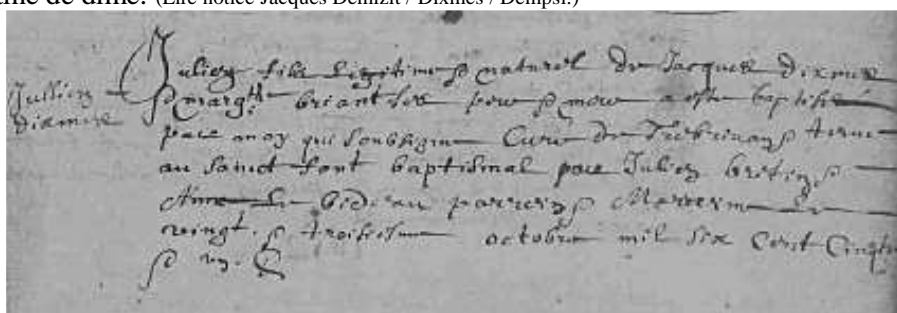 (Lire notice Jacques Demizit / Dixmes / Dempsi.)
Jullien
dixmere
Julien fils legitime et naturel de Jacques dixmer
et marg.te briant ses pere et mere a este baptisé
par moy qui soubsigne Curé de Trebrivan et tenu
au sainct font baptismal par Julien
Anne Le Bideau parrein et Marreine Le
vingt et troisiesme octobre mil six Cent Cinqte
et un